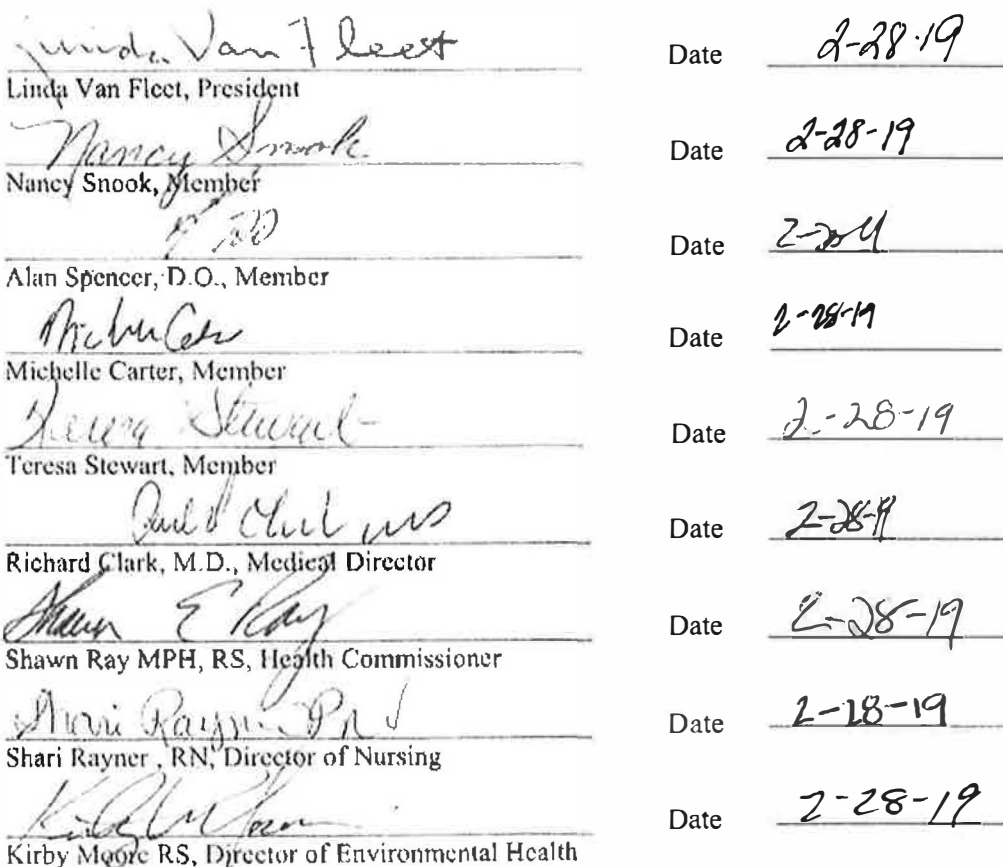 Linda Van Fleet Date 2-28-19
Linda Van Fleet, President
Nancy Snook Date 2-28-19
Nancy Snook, Member
Date
Alan Spencer, D.O., Member
Date 2-28-19
Michelle Carter, Member
Teresa Stewart Date 2-28-19
Teresa Stewart, Member
Date 2-28-19
Richard Clark, M.D., Medical Director
Shawn E Ray Date 2-28-19
Shawn Ray MPH, RS, Health Commissioner
Shari Rayner RN Date 2-28-19
Shari Rayner , RN, Director of Nursing
Date 2-28-19
Kirby Moore RS, Director of Environmental Health